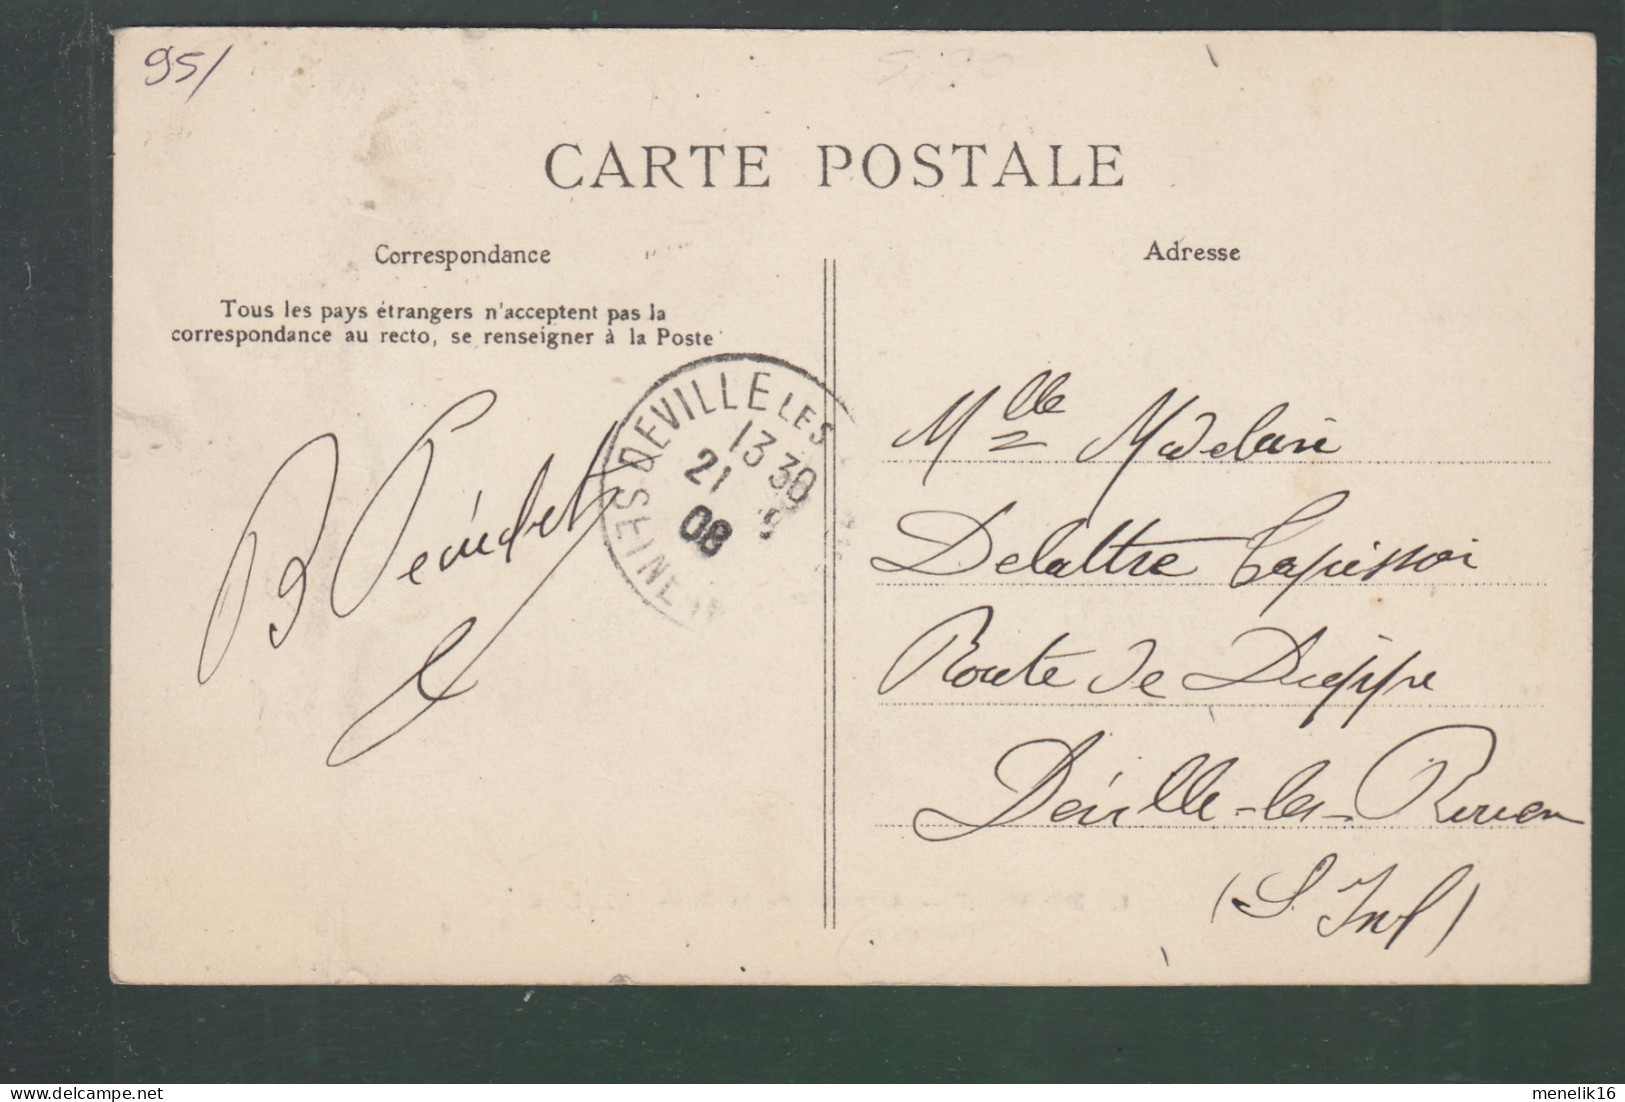 95/
CARTE POSTALE
Correspondance
Adresse
Tous les pays étrangers n'acceptent pas la
correspondance au recto, se renseigner à la Poste
DEVILLE LES
13 30
21
08
SEINE
B
Mlle
Delattre
Route de Dieppe
Déville-les-Rouen
(S. Inf)
menelik16